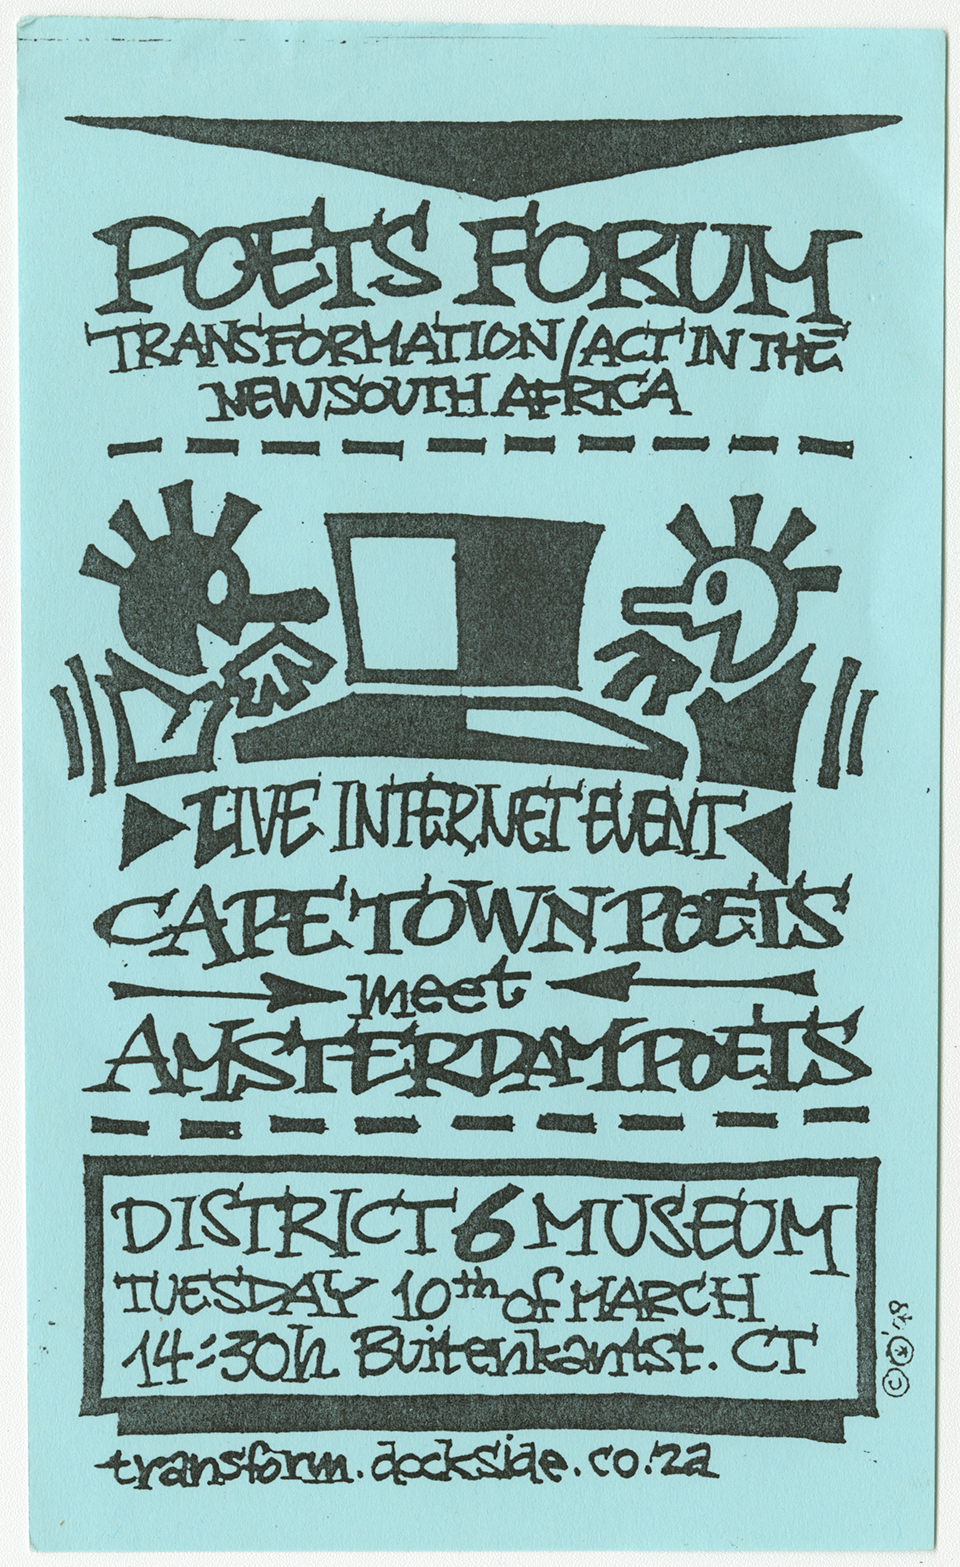 POETS FORUM
TRANSFORMATION/ACT IN THE
NEW SOUTH AFRICA
LIVE INTERNET EVENT
CAPE TOWN POETS
meet
AMSTERDAM POETS
DISTRICT 6 MUSEUM
TUESDAY 10th of MARCH
14:30h Buitenkantst. CT
© '98
transform.dockside.co.za